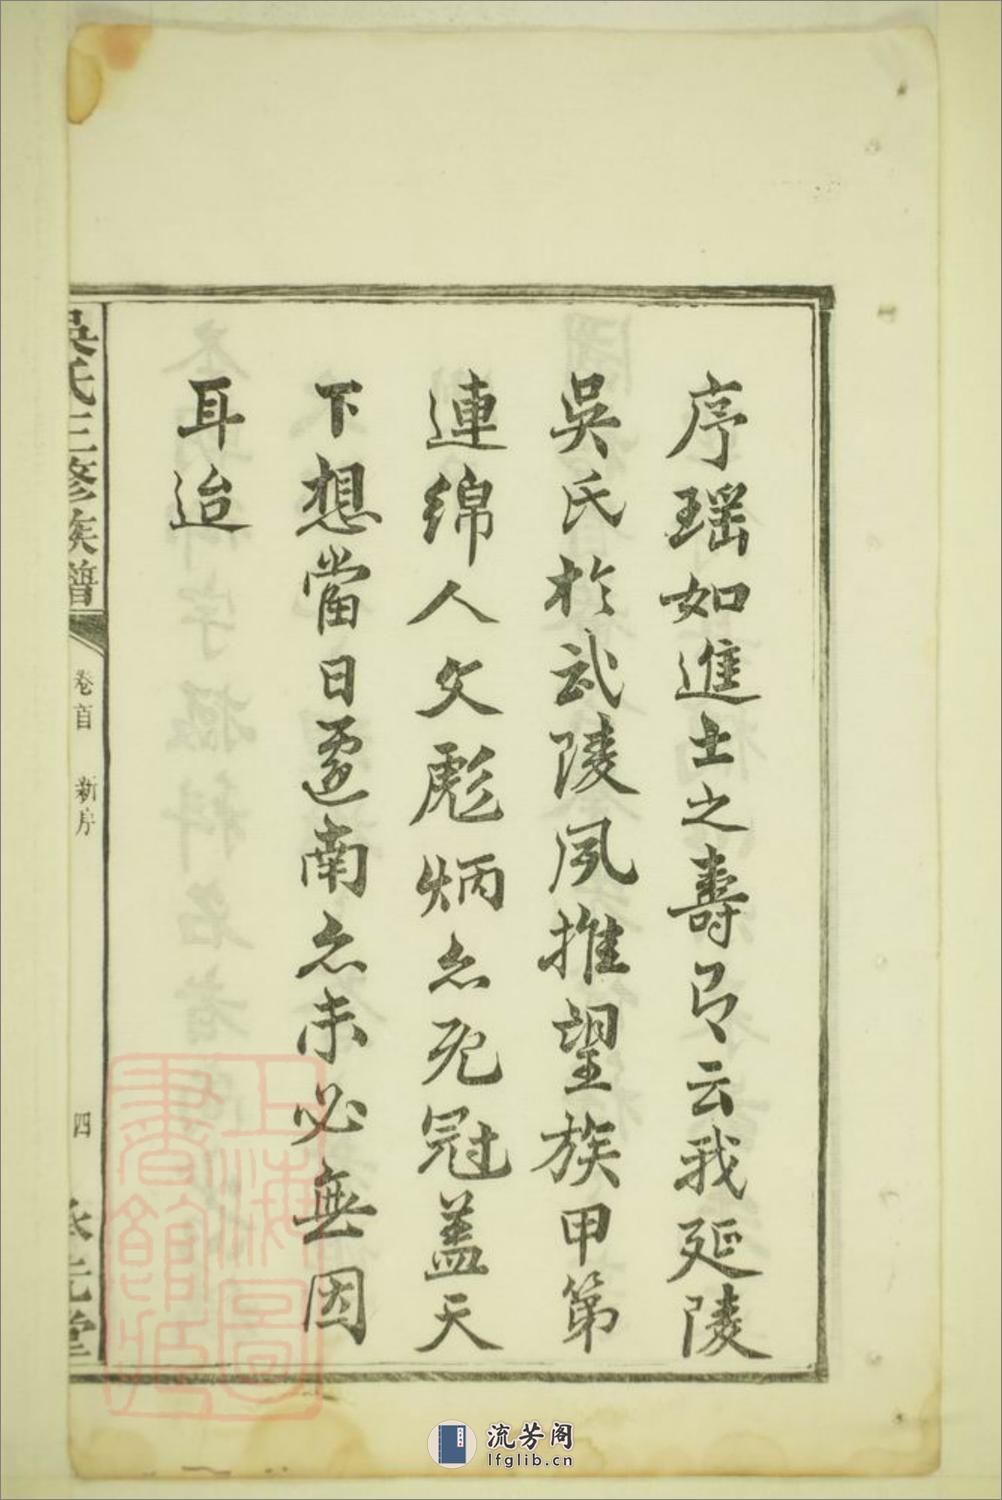 序瑶如進士之壽有云我延陵
吳氏於武陵夙推望族甲第
連綿人文彪炳亦既冠蓋天
下想當日遷南亦未必無因
耳迨
吳氏三修族譜
卷首 新序
四
上海圖書館藏
流芳阁
lfglib.cn